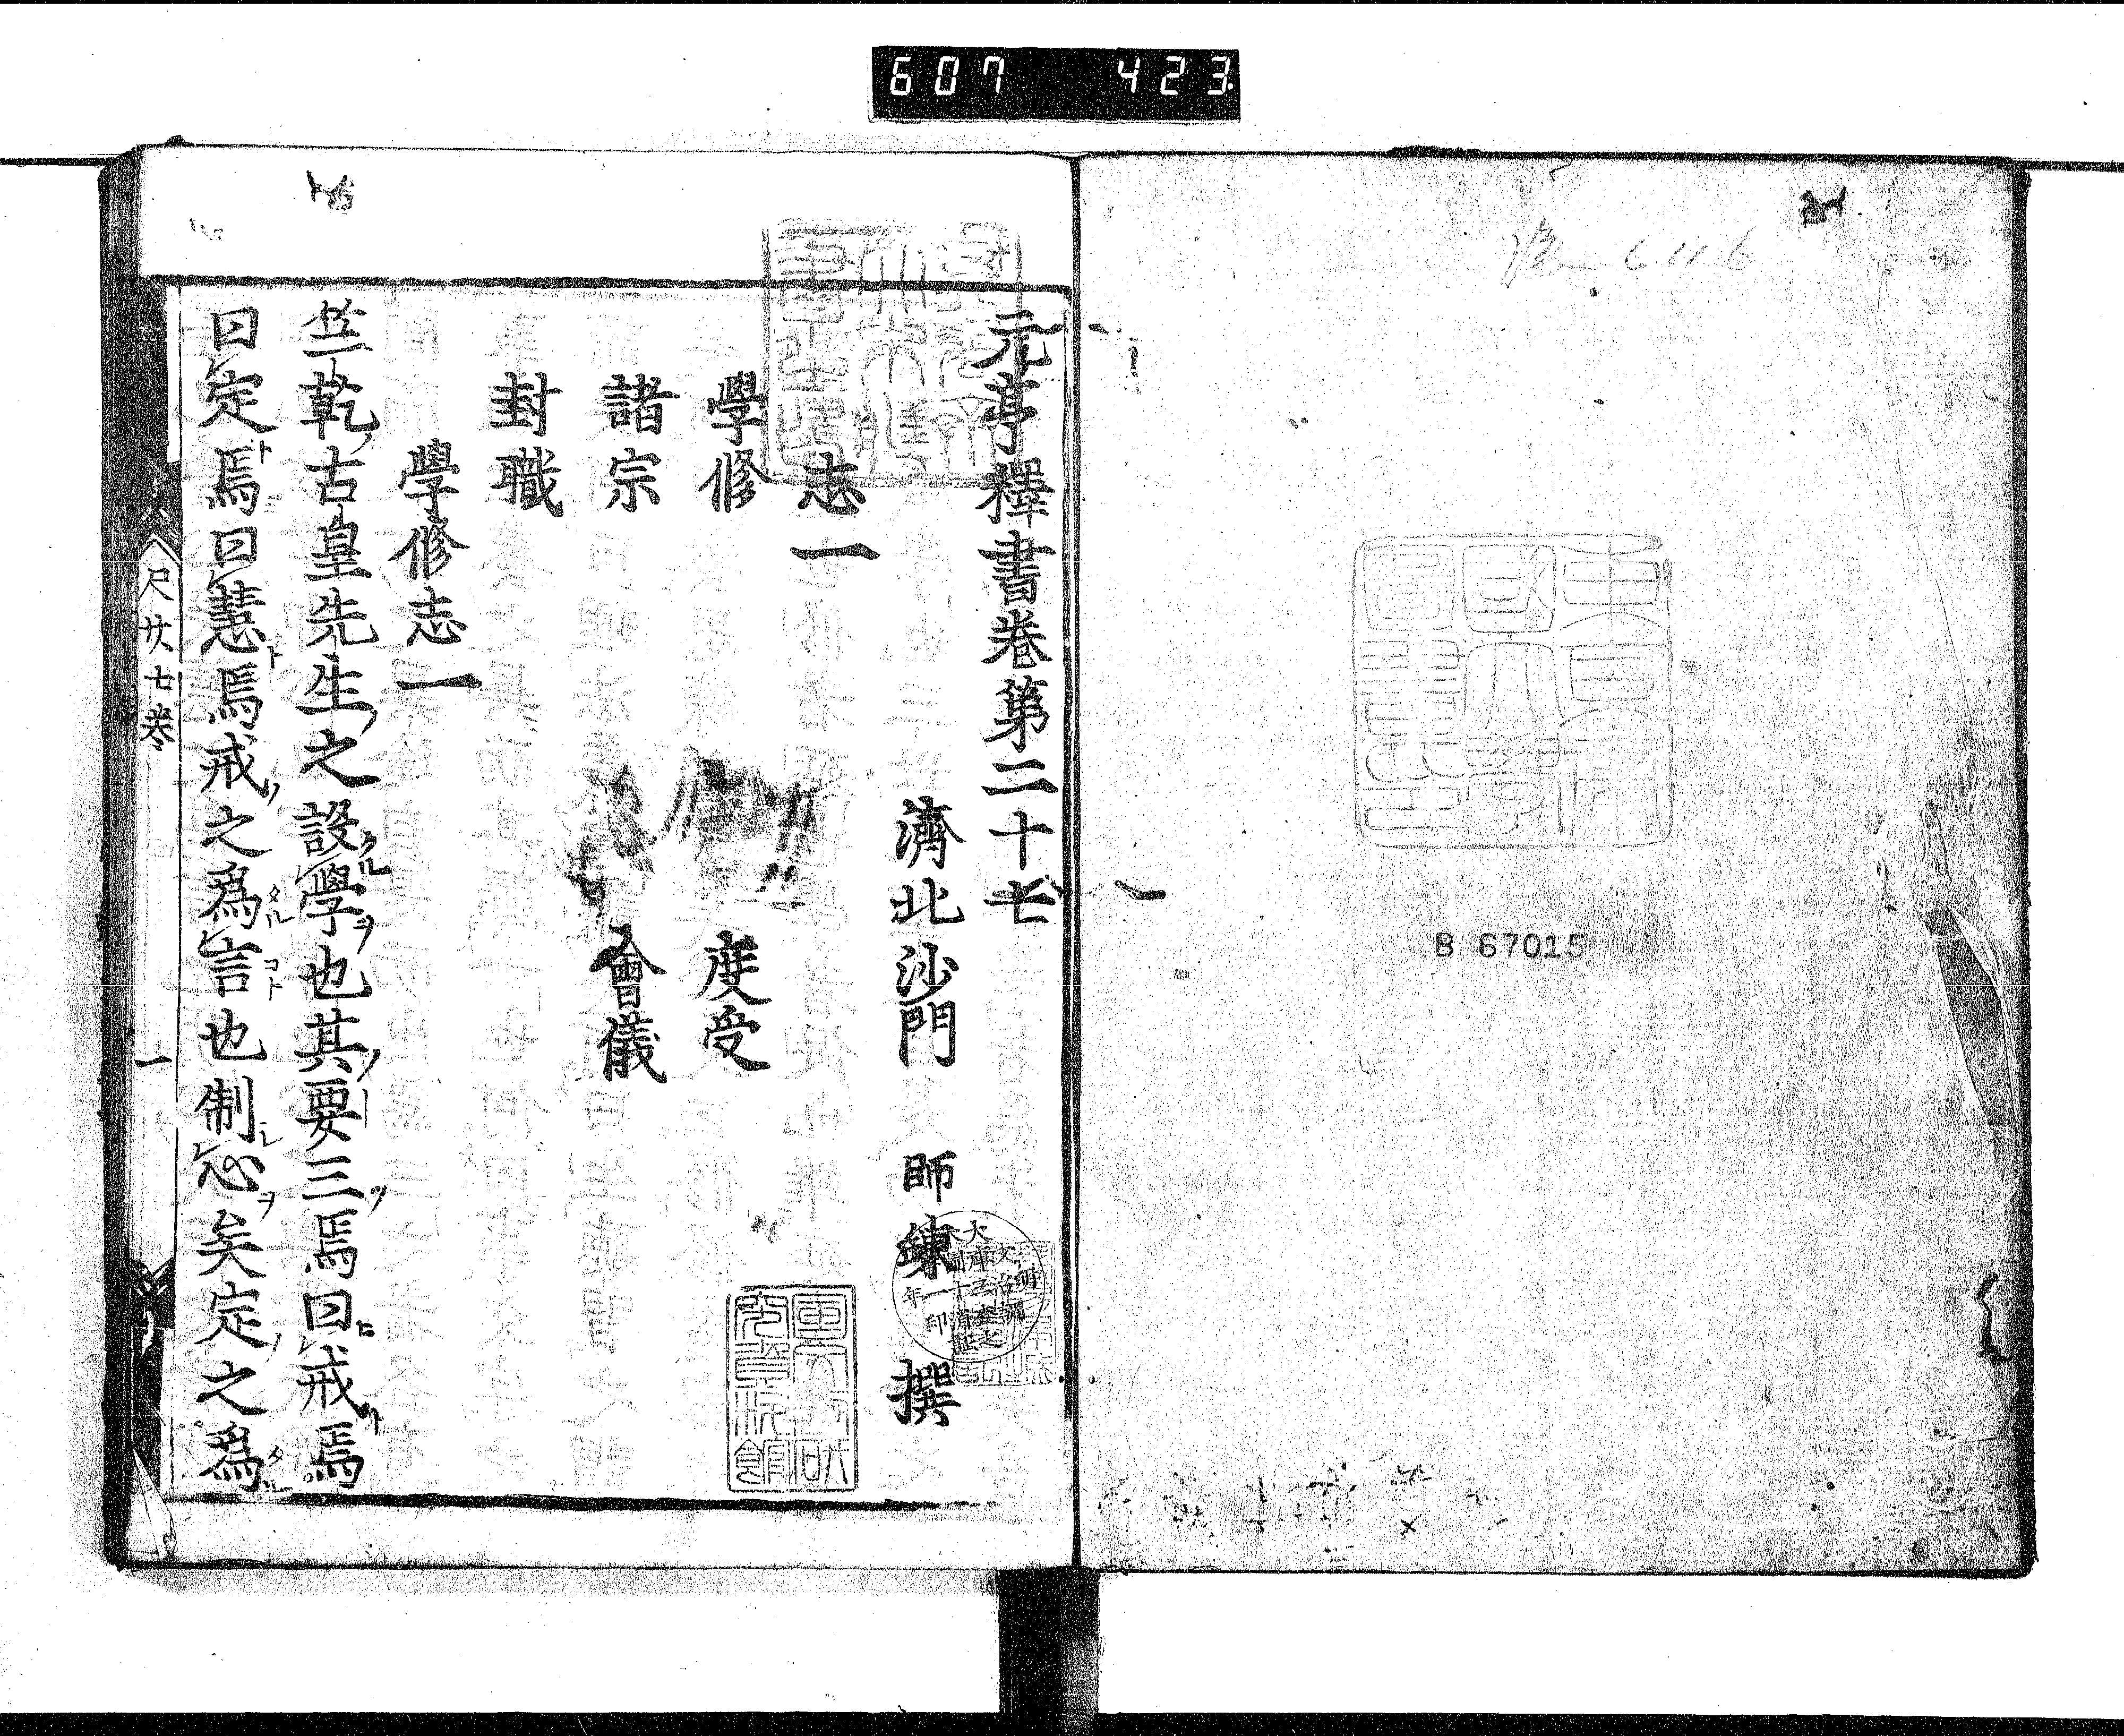 607 423
B 67015
元亨釋書卷第二十七
濟北沙門 師錬 撰
志一
學修 度受
諸宗 會儀
封職
學修志一
竺乾古皇先生之設學也其要三焉曰戒焉
曰定焉曰慧焉戒之爲言也制心矣定之爲
尺廿七卷 一